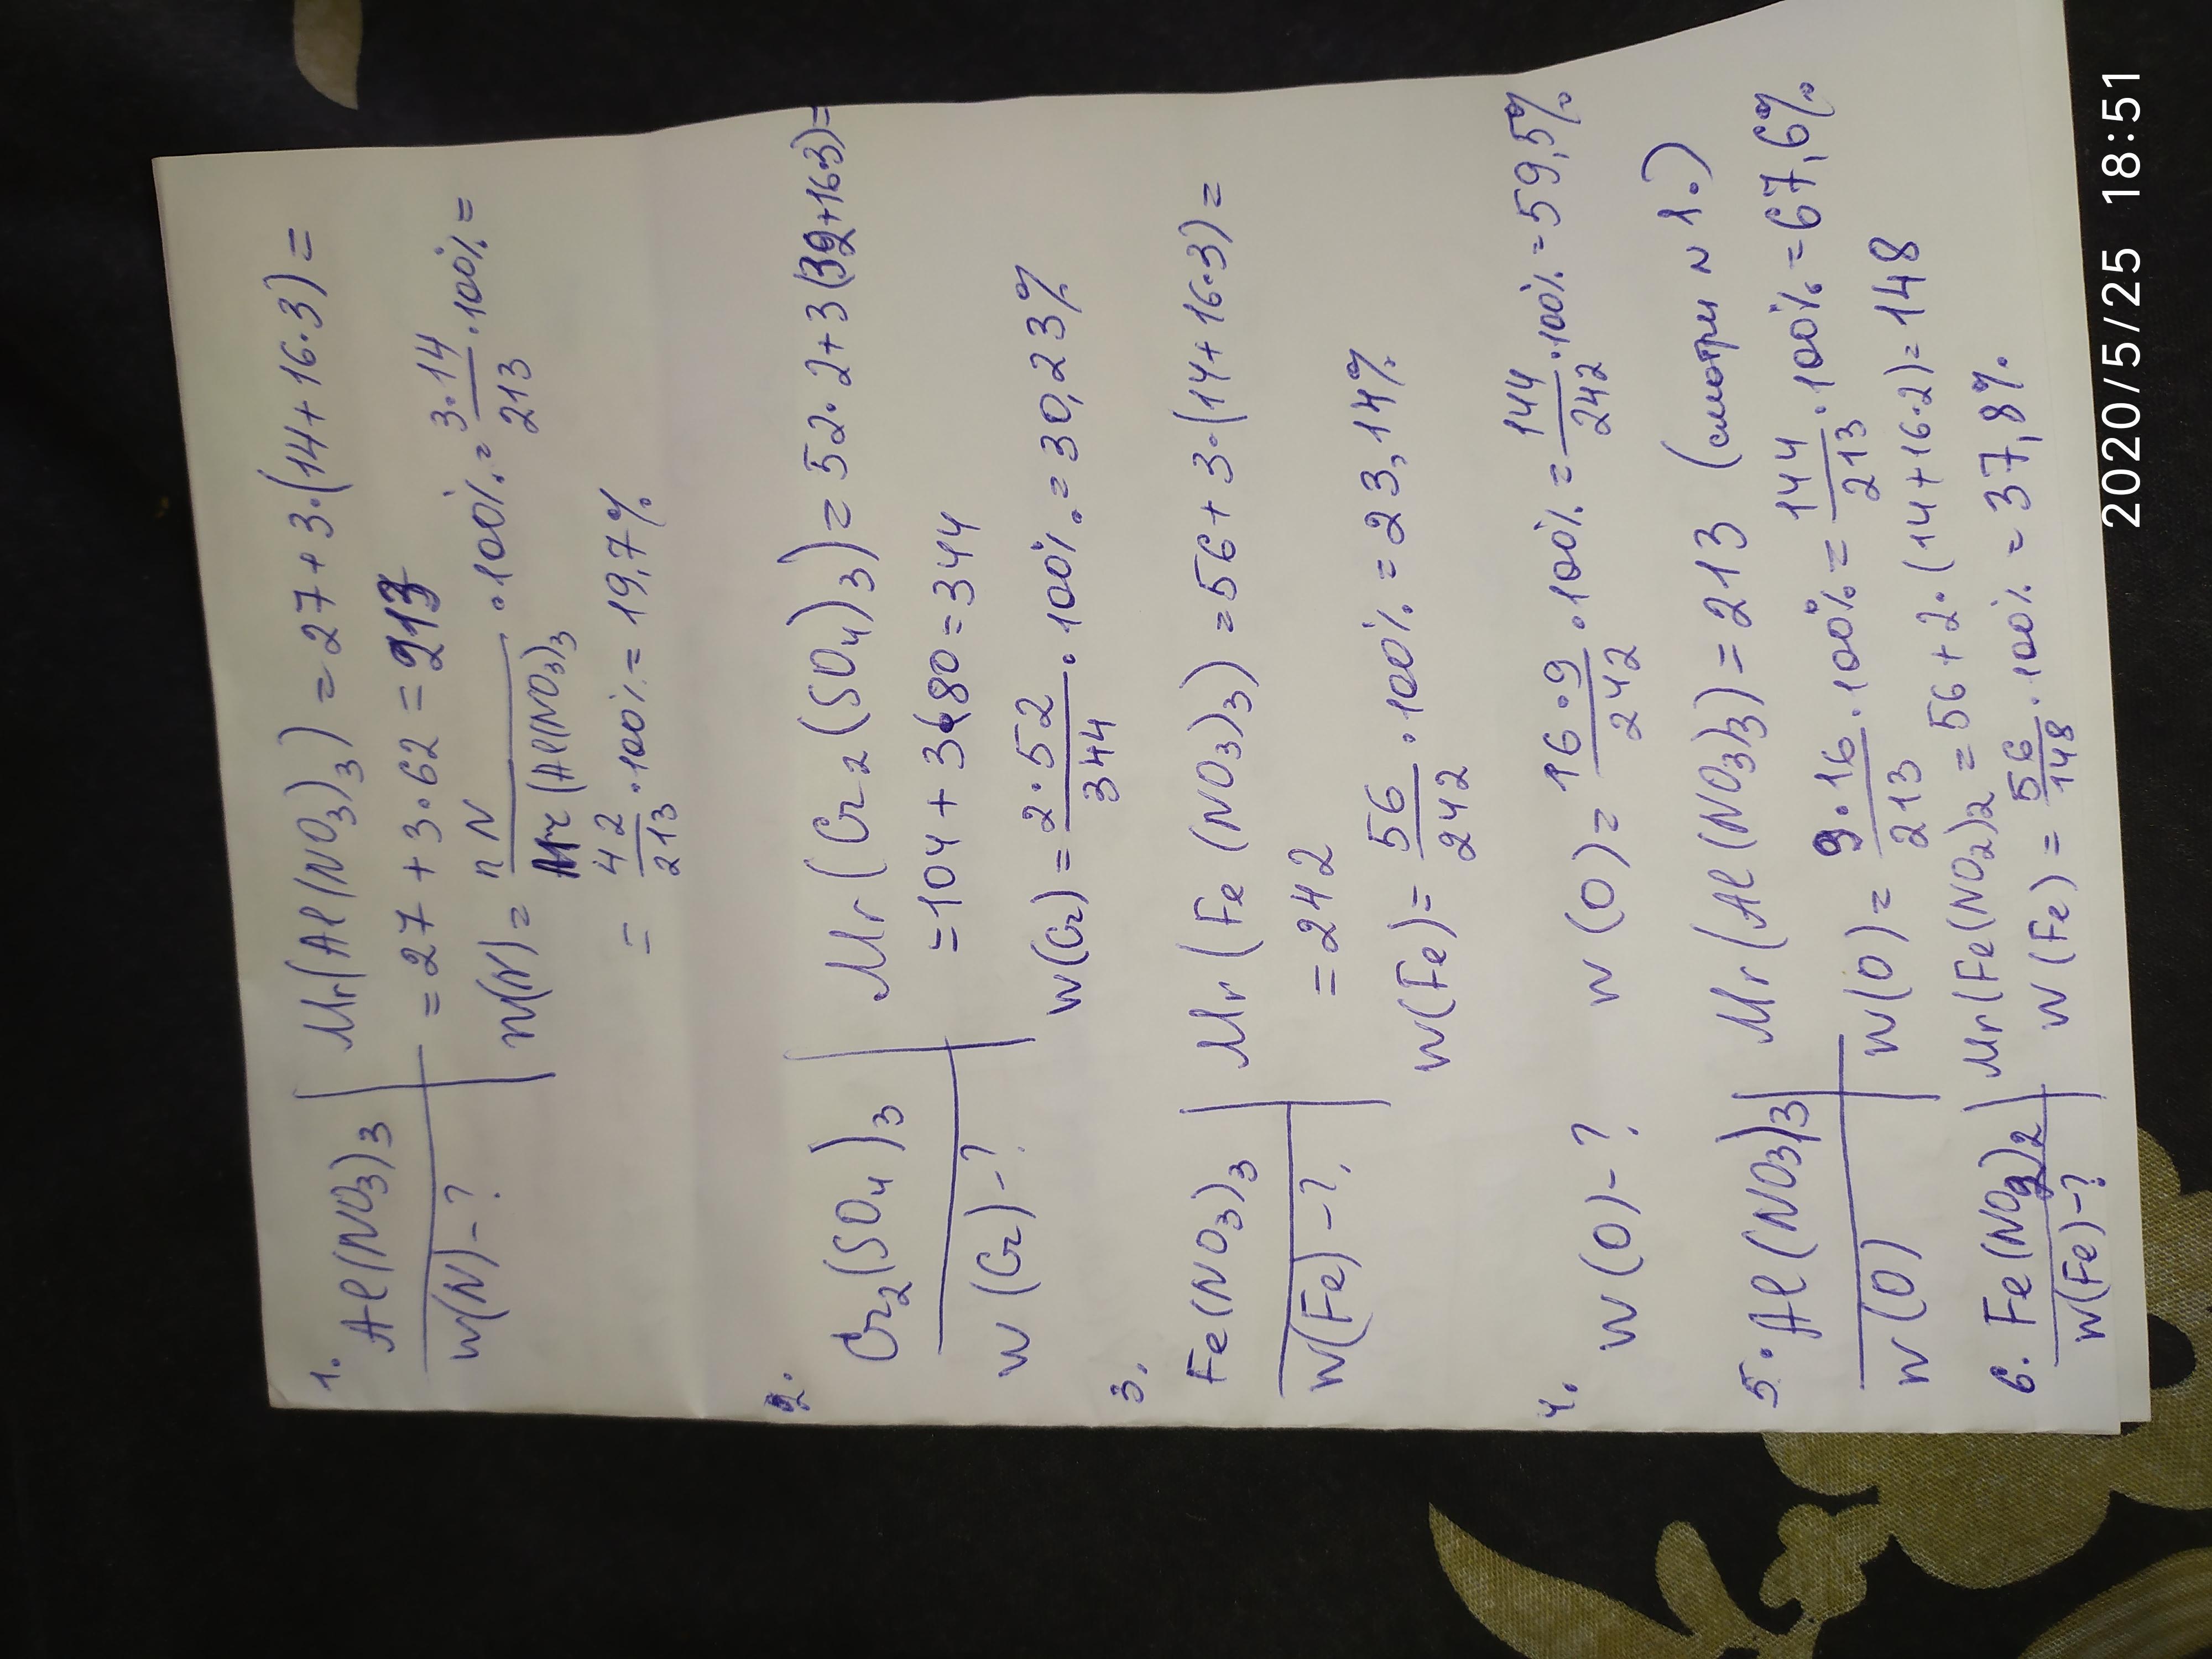 1.
Al(NO3)3 | Mr(Al(NO3)3) = 27+3·(14+16·3) =
= 27+3·62 = 213
w(N)-? w(N) = nN / Mr(Al(NO3)3) ·100% = 3·14/213 ·100% =
= 42/213 ·100% = 19,7%
2.
Cr2(SO4)3 | Mr(Cr2(SO4)3) = 52·2+3(32+16·3) =
= 104+3·80 = 344
w(Cr)-? w(Cr) = 2·52/344 ·100% = 30,23%
3.
Fe(NO3)3 | Mr(Fe(NO3)3) = 56+3·(14+16·3) =
= 242
w(Fe)-? w(Fe) = 56/242 ·100% = 23,14%
4.
w(O)-? w(O) = 16·9/242 ·100% = 144/242 ·100% = 59,5%
5. Al(NO3)3 | Mr(Al(NO3)3) = 213 (смотри N 1.)
w(O) w(O) = 9·16/213 ·100% = 144/213 ·100% = 67,6%
6. Fe(NO2)2 | Mr(Fe(NO2)2 = 56+2·(14+16·2) = 148
w(Fe)-? w(Fe) = 56/148 ·100% = 37,8%
2020/5/25 18:51